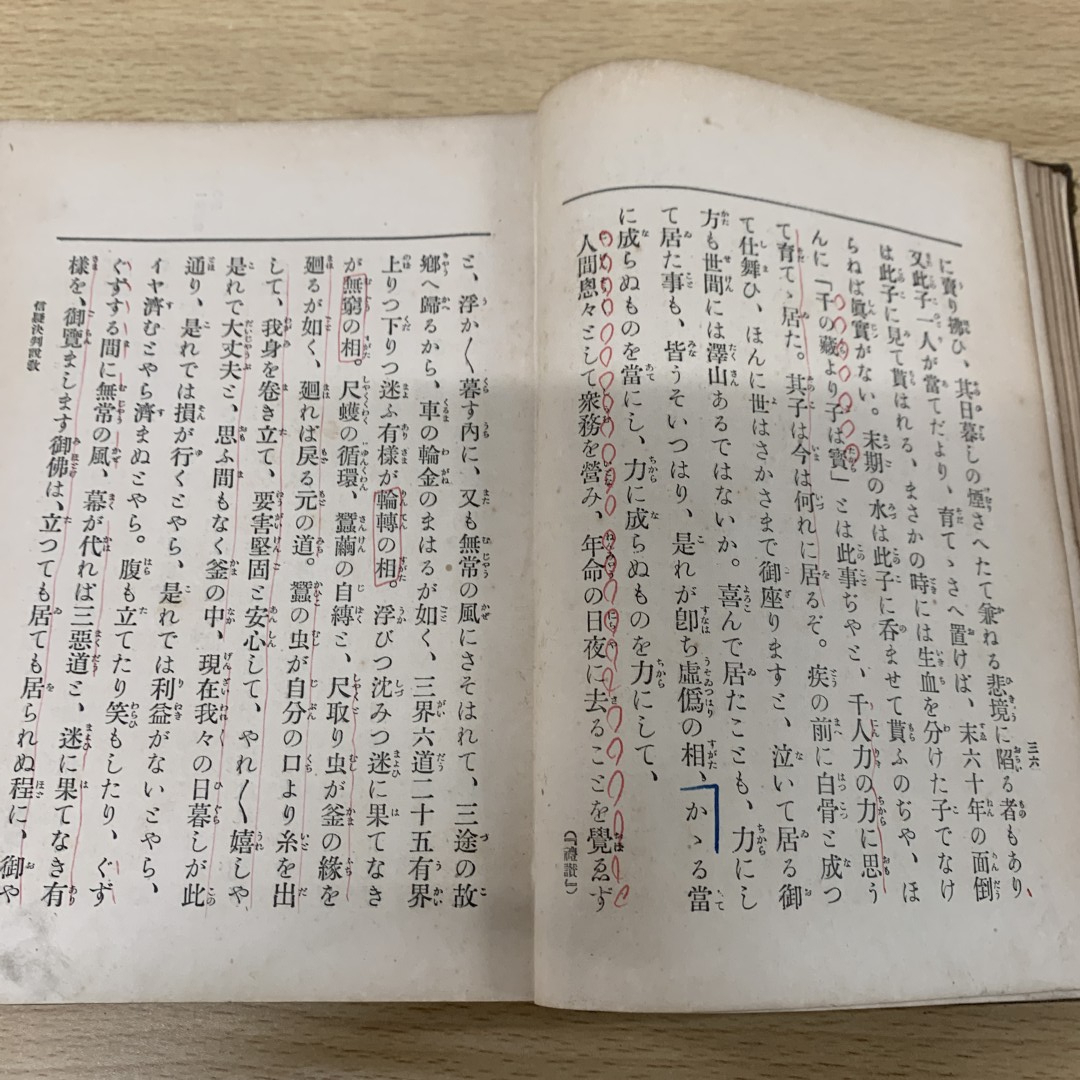 三六
に賣り拂ひ、其日暮しの煙さへたて兼ねる悲境に陷る者もあり、
又此子一人が當てだより、育てゝさへ置けば、末六十年の面倒
は此子に見て貰はれる、まさかの時には生血を分けた子でなけ
らねば眞實がない。末期の水は此子に呑ませて貰ふのぢや、ほ
んに「千の藏より子は寳」とは此事ぢやと、千人力の力に思う
て育てゝ居た。其子は今は何れに居るぞ。疾の前に白骨と成つ
て仕舞ひ、ほんに世はさかさまで御座りますと、泣いて居る御
方も世間には澤山あるではないか。喜んで居たことも、力にし
て居た事も、皆うそいつはり、是れが卽ち虛僞の相、かゝる當
に成らぬものを當にし、力に成らぬものを力にして、
人間恩々として衆務を營み、年命の日夜に去ることを覺ゑず
(「禮讃」)
と、浮か〱暮す內に、又も無常の風にさそはれて、三途の故
鄕へ歸るから、車の輪金のまはるが如く、三界六道二十五有界
上りつ下りつ迷ふ有樣が輪轉の相。浮びつ沈みつ迷に果てなき
が無窮の相。尺蠖の循環、蠶繭の自縛と、尺取り虫が釜の緣を
廻るが如く、廻れば戾る元の道。蠶の虫が自分の口より糸を出
して、我身を卷き立て、要害堅固と安心して、やれ〱嬉しや
是れで大丈夫と、思ふ間もなく釜の中、現在我々の日暮しが此
通り、是れでは損が行くとやら、是れでは利益がないとやら、
イヤ濟むとやら濟まぬとやら。腹も立てたり笑もしたり、ぐず
ぐずする間に無常の風、幕が代れば三惡道と、迷に果てなき有
樣を、御覽まします御佛は、立つても居ても居られぬ程に、御や
信疑決判說敎